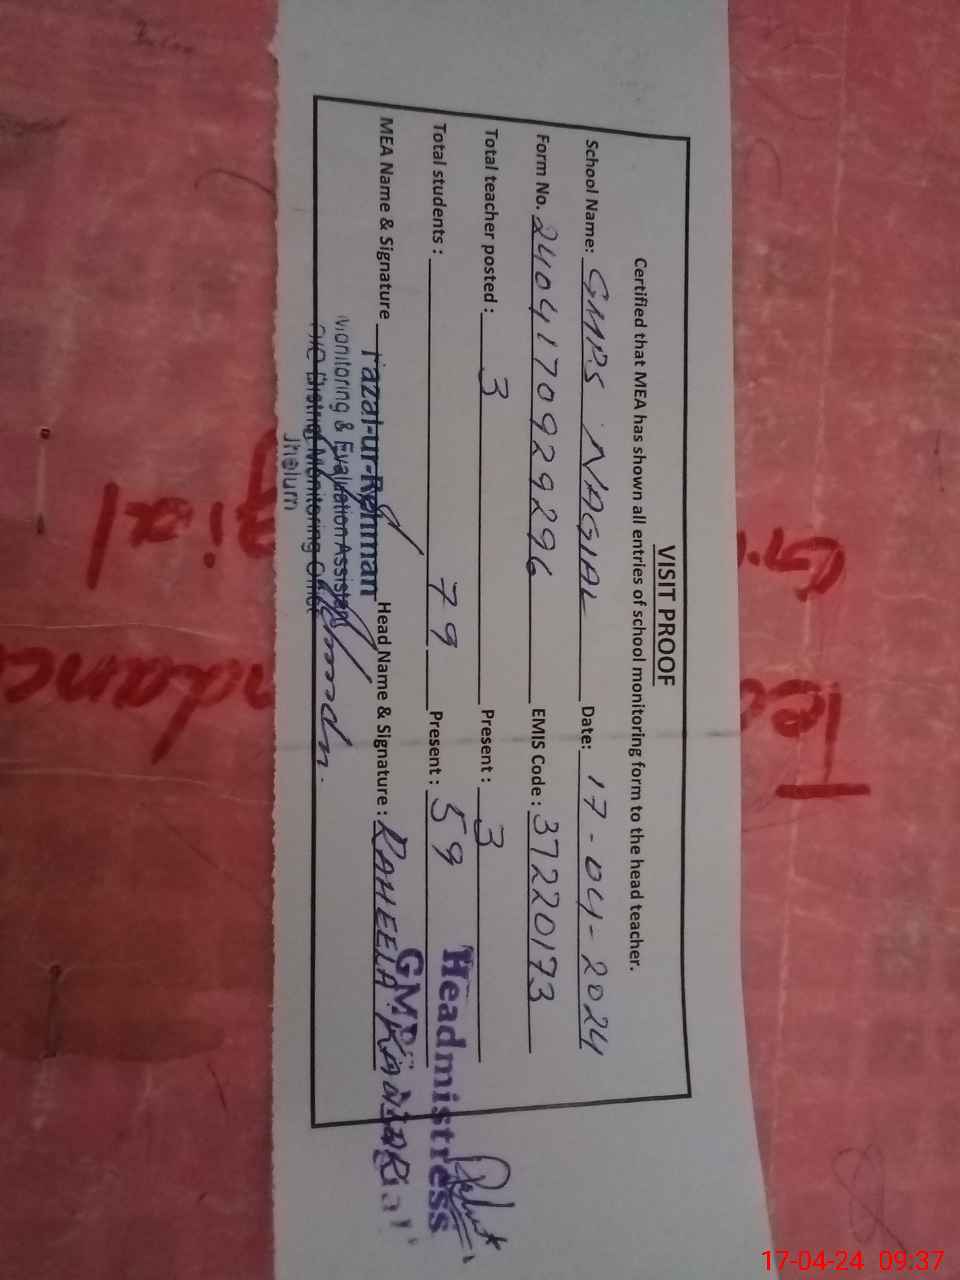 VISIT PROOF
Certified that MEA has shown all entries of school monitoring form to the head teacher.
School Name: GMPS NAGIAL Date: 17-04-2024
Form No. 2404170929296 EMIS Code: 37220173
Total teacher posted: 3 Present: 3
Total students: 79 Present: 59
MEA Name & Signature Fazal-ur-Rehman Head Name & Signature: RAHEELA KANWAL
Monitoring & Evaluation Assistant
O/O District Monitoring Officer
Jhelum
Headmistress
GMPS
17-04-24 09:37